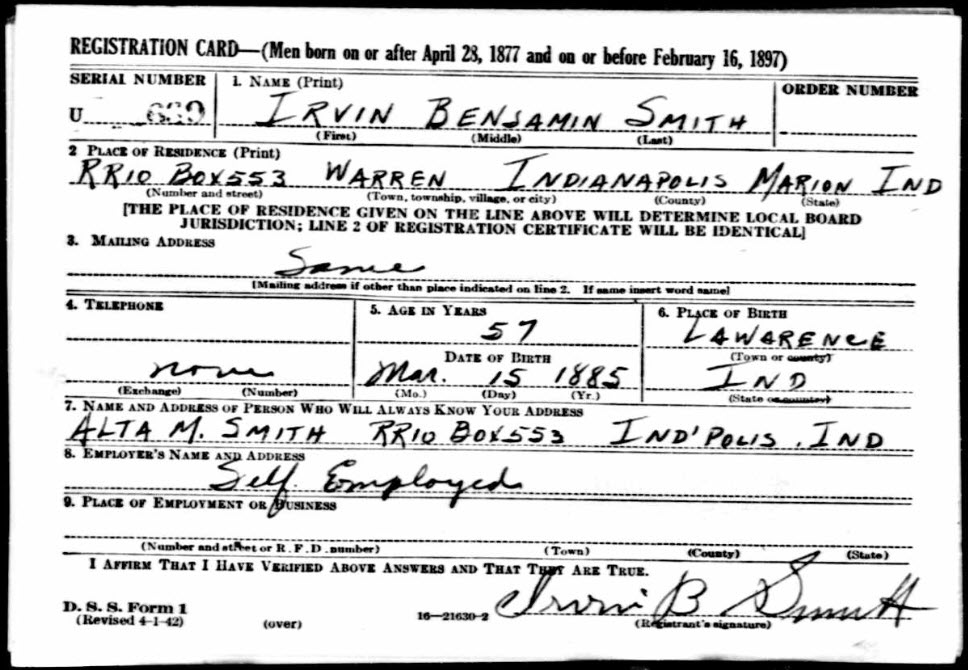 REGISTRATION CARD—(Men born on or after April 28, 1877 and on or before February 16, 1897)
SERIAL NUMBER
1. NAME (Print)
ORDER NUMBER
U
IRVIN BENJAMIN SMITH
(First) (Middle) (Last)
2 PLACE OF RESIDENCE (Print)
RR10 BOX553 WARREN INDIANAPOLIS MARION IND
(Number and street) (Town, township, village, or city) (County) (State)
[THE PLACE OF RESIDENCE GIVEN ON THE LINE ABOVE WILL DETERMINE LOCAL BOARD
JURISDICTION; LINE 2 OF REGISTRATION CERTIFICATE WILL BE IDENTICAL]
3. MAILING ADDRESS
Same
[Mailing address if other than place indicated on line 2. If same insert word same]
4. TELEPHONE
5. AGE IN YEARS
6. PLACE OF BIRTH
57
LAWARENCE
DATE OF BIRTH
(Town or county)
none
Mar. 15 1885
IND
(Exchange) (Number)
(Mo.) (Day) (Yr.)
(State or country)
7. NAME AND ADDRESS OF PERSON WHO WILL ALWAYS KNOW YOUR ADDRESS
ALTA M. SMITH RR10 BOX553 IND'POLIS. IND
8. EMPLOYER'S NAME AND ADDRESS
Self Employed
9. PLACE OF EMPLOYMENT OR BUSINESS
(Number and street or R. F. D. number) (Town) (County) (State)
I AFFIRM THAT I HAVE VERIFIED ABOVE ANSWERS AND THAT THEY ARE TRUE.
D. S. S. Form 1
(Revised 4-1-42)
(over)
16—21630-2
Irvin B Smith
(Registrant's signature)